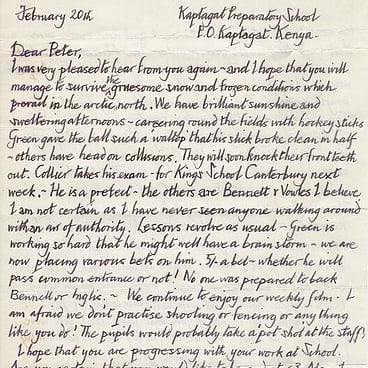 February 20th Kaptagat Preparatory School
P.O. Kaptagat. Kenya.
Dear Peter,
I was very pleased to hear from you again - and I hope that you will
manage to survive the gruesome snow and frozen conditions which
prevail in the arctic north. We have brilliant sunshine and
sweltering afternoons - careering round the fields with hockey sticks
Green gave the ball such a wallop that his stick broke clean in half
- others have head on collisions. They will soon knock their front teeth
out. Collier takes his exam - for Kings School Canterbury next
week. - He is a prefect - the others are Bennett & Vowles I believe
I am not certain as I have never seen anyone walking around
with an air of authority. Lessons revolve as usual - Green is
working so hard that he might well have a brain storm - we are
now placing various bets on him. 5/- a bet - whether he will
pass common entrance or not! No one was prepared to back
Bennell, or Inglis. ~ We continue to enjoy our weekly film. I
am afraid we don't practise shooting or fencing or any thing
like you do! The pupils would probably take a pot shot at the staff!
I hope that you are progressing with your work at School.